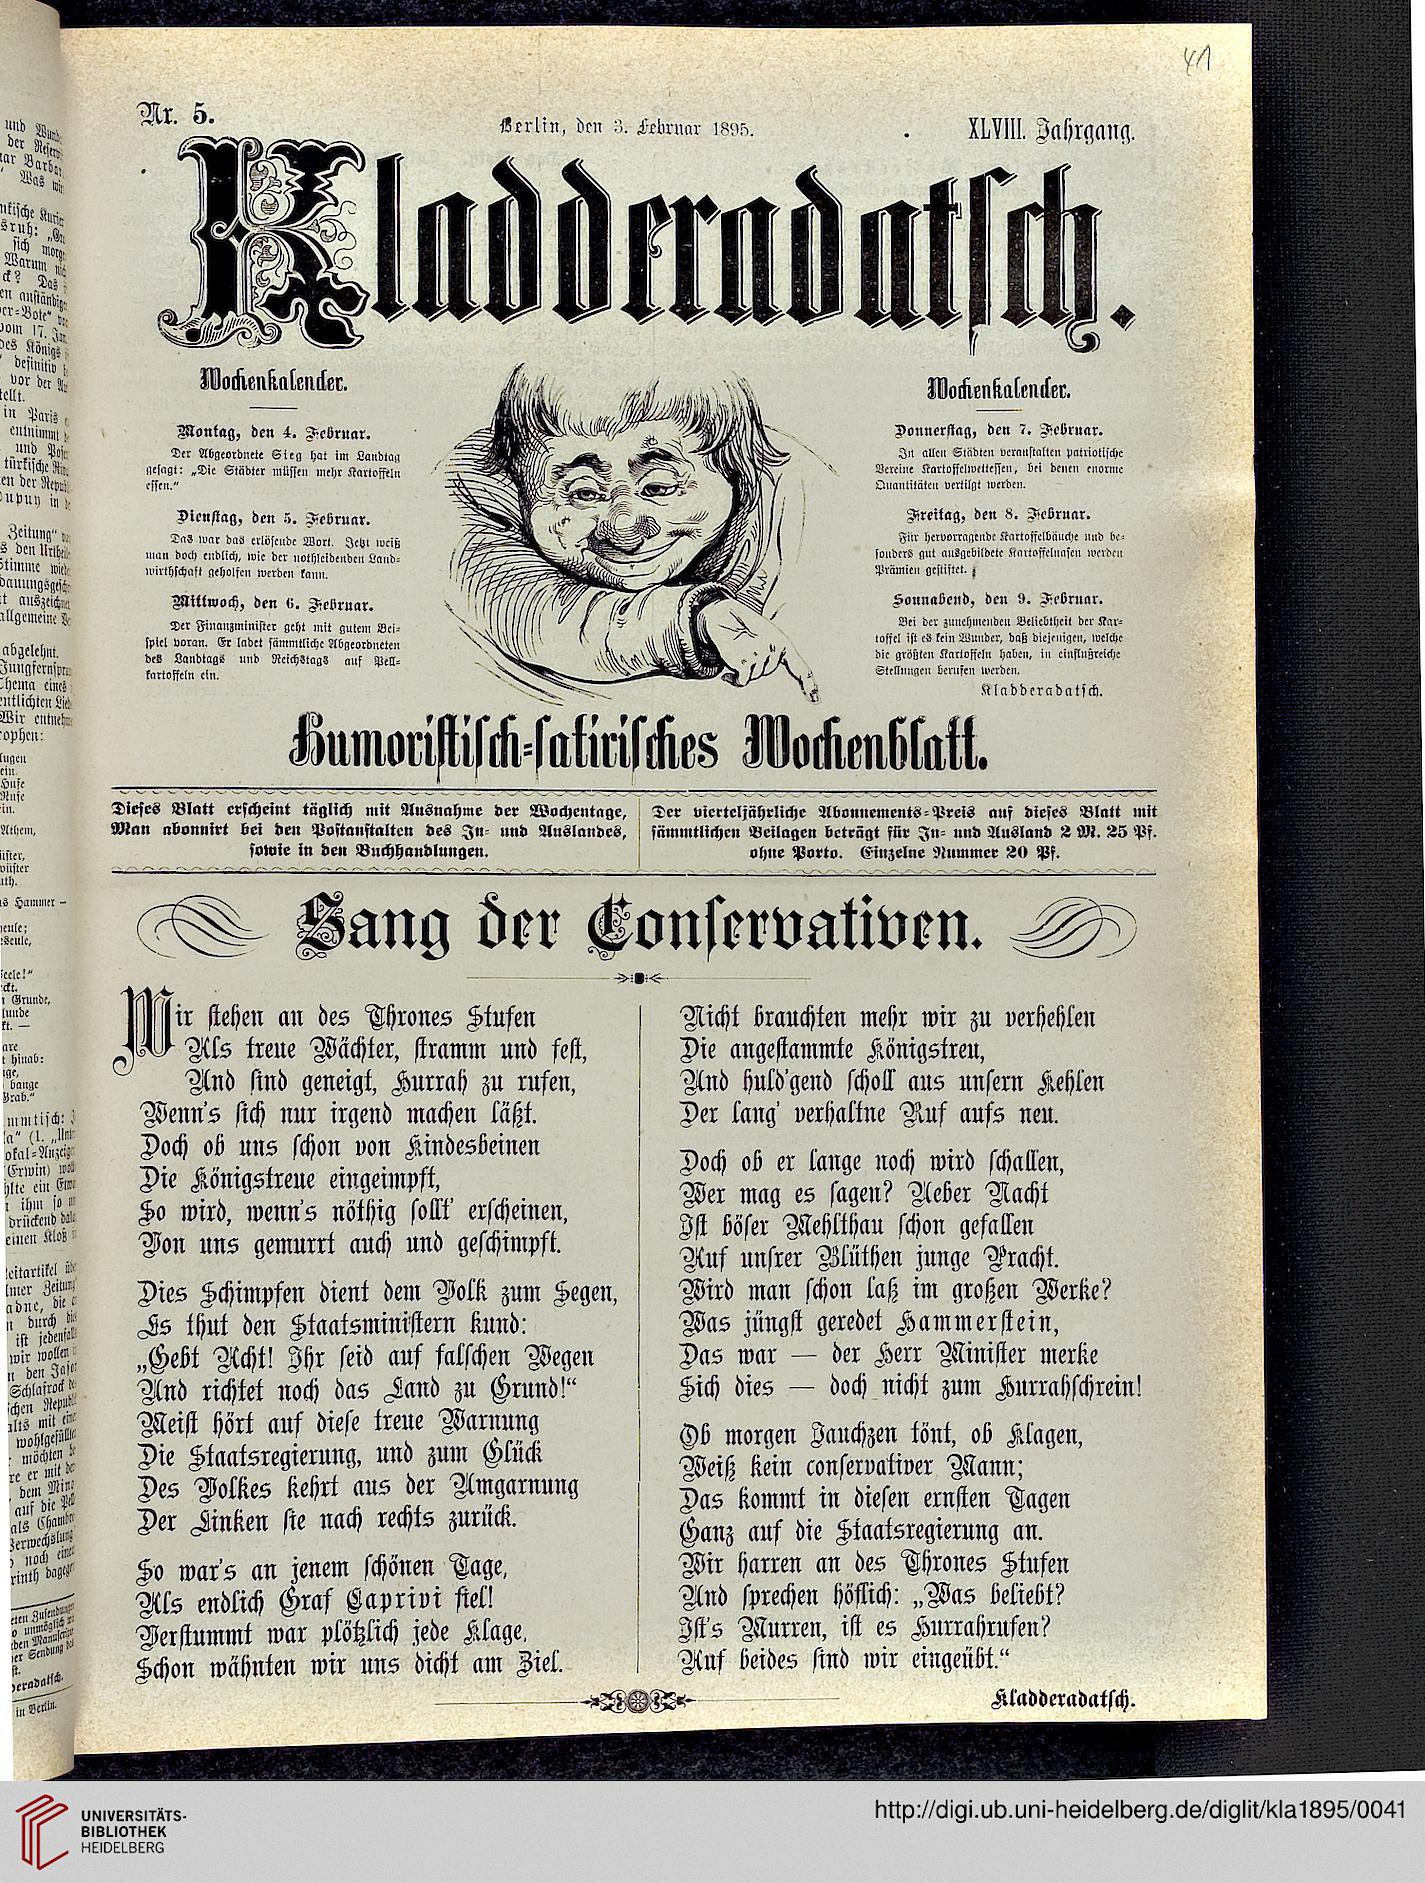 41
Nr. 5.
Berlin, den 3. Februar 1895.
XLVIII. Jahrgang.
Kladderadatsch.
Wochenkalender.
Montag, den 4. Februar.
Der Abgeordnete Sieg hat im Landtag
gesagt: „Die Städter müssen mehr Kartoffeln
essen.“
Dienstag, den 5. Februar.
Das war das erlösende Wort. Jetzt weiß
man doch endlich, wie der nothleidenden Land-
wirthschaft geholfen werden kann.
Mittwoch, den 6. Februar.
Der Finanzminister geht mit gutem Bei-
spiel voran. Er ladet sämmtliche Abgeordneten
des Landtags und Reichstags auf Pell-
kartoffeln ein.
Wochenkalender.
Donnerstag, den 7. Februar.
In allen Städten veranstalten patriotische
Vereine Kartoffelwettessen, bei denen enorme
Quantitäten vertilgt werden.
Freitag, den 8. Februar.
Für hervorragende Kartoffelbäuche und be-
sonders gut ausgebildete Kartoffelnasen werden
Prämien gestiftet.
Sonnabend, den 9. Februar.
Bei der zunehmenden Beliebtheit der Kar-
toffel ist es kein Wunder, daß diejenigen, welche
die größten Kartoffeln haben, in einflußreiche
Stellungen berufen werden.
Kladderadatsch.
Humoristisch-satirisches Wochenblatt.
Dieses Blatt erscheint täglich mit Ausnahme der Wochentage,
Man abonnirt bei den Postanstalten des In- und Auslandes,
sowie in den Buchhandlungen.
Der vierteljährliche Abonnements-Preis auf dieses Blatt mit
sämmtlichen Beilagen beträgt für In- und Ausland 2 M. 25 Pf.
ohne Porto. Einzelne Nummer 20 Pf.
Sang der Conservativen.
Wir stehen an des Thrones Stufen
Als treue Wächter, stramm und fest,
Und sind geneigt, Hurrah zu rufen,
Wenn's sich nur irgend machen läßt.
Doch ob uns schon von Kindesbeinen
Die Königstreue eingeimpft,
So wird, wenn's nöthig sollt' erscheinen,
Von uns gemurrt auch und geschimpft.
Dies Schimpfen dient dem Volk zum Segen,
Es thut den Staatsministern kund:
„Gebt Acht! Ihr seid auf falschen Wegen
Und richtet noch das Land zu Grund!“
Meist hört auf diese treue Warnung
Die Staatsregierung, und zum Glück
Des Volkes kehrt aus der Umgarnung
Der Linken sie nach rechts zurück.
So war's an jenem schönen Tage,
Als endlich Graf Caprivi fiel!
Verstummt war plötzlich jede Klage,
Schon wähnten wir uns dicht am Ziel.
Nicht brauchten mehr wir zu verhehlen
Die angestammte Königstreu,
Und huld'gend scholl aus unsern Kehlen
Der lang' verhaltne Ruf aufs neu.
Doch ob er lange noch wird schallen,
Wer mag es sagen? Ueber Nacht
Ist böser Mehlthau schon gefallen
Auf unsrer Blüthen junge Pracht.
Wird man schon laß im großen Werke?
Was jüngst geredet Hammerstein,
Das war — der Herr Minister merke
Sich dies — doch nicht zum Hurrahschrein!
Ob morgen Jauchzen tönt, ob Klagen,
Weiß kein conservativer Mann;
Das kommt in diesen ernsten Tagen
Ganz auf die Staatsregierung an.
Wir harren an des Thrones Stufen
Und sprechen höflich: „Was beliebt?
Ist's Murren, ist es Hurrahrufen?
Auf beides sind wir eingeübt.“
Kladderadatsch.
UNIVERSITÄTS-
BIBLIOTHEK
HEIDELBERG
http://digi.ub.uni-heidelberg.de/diglit/kla1895/0041